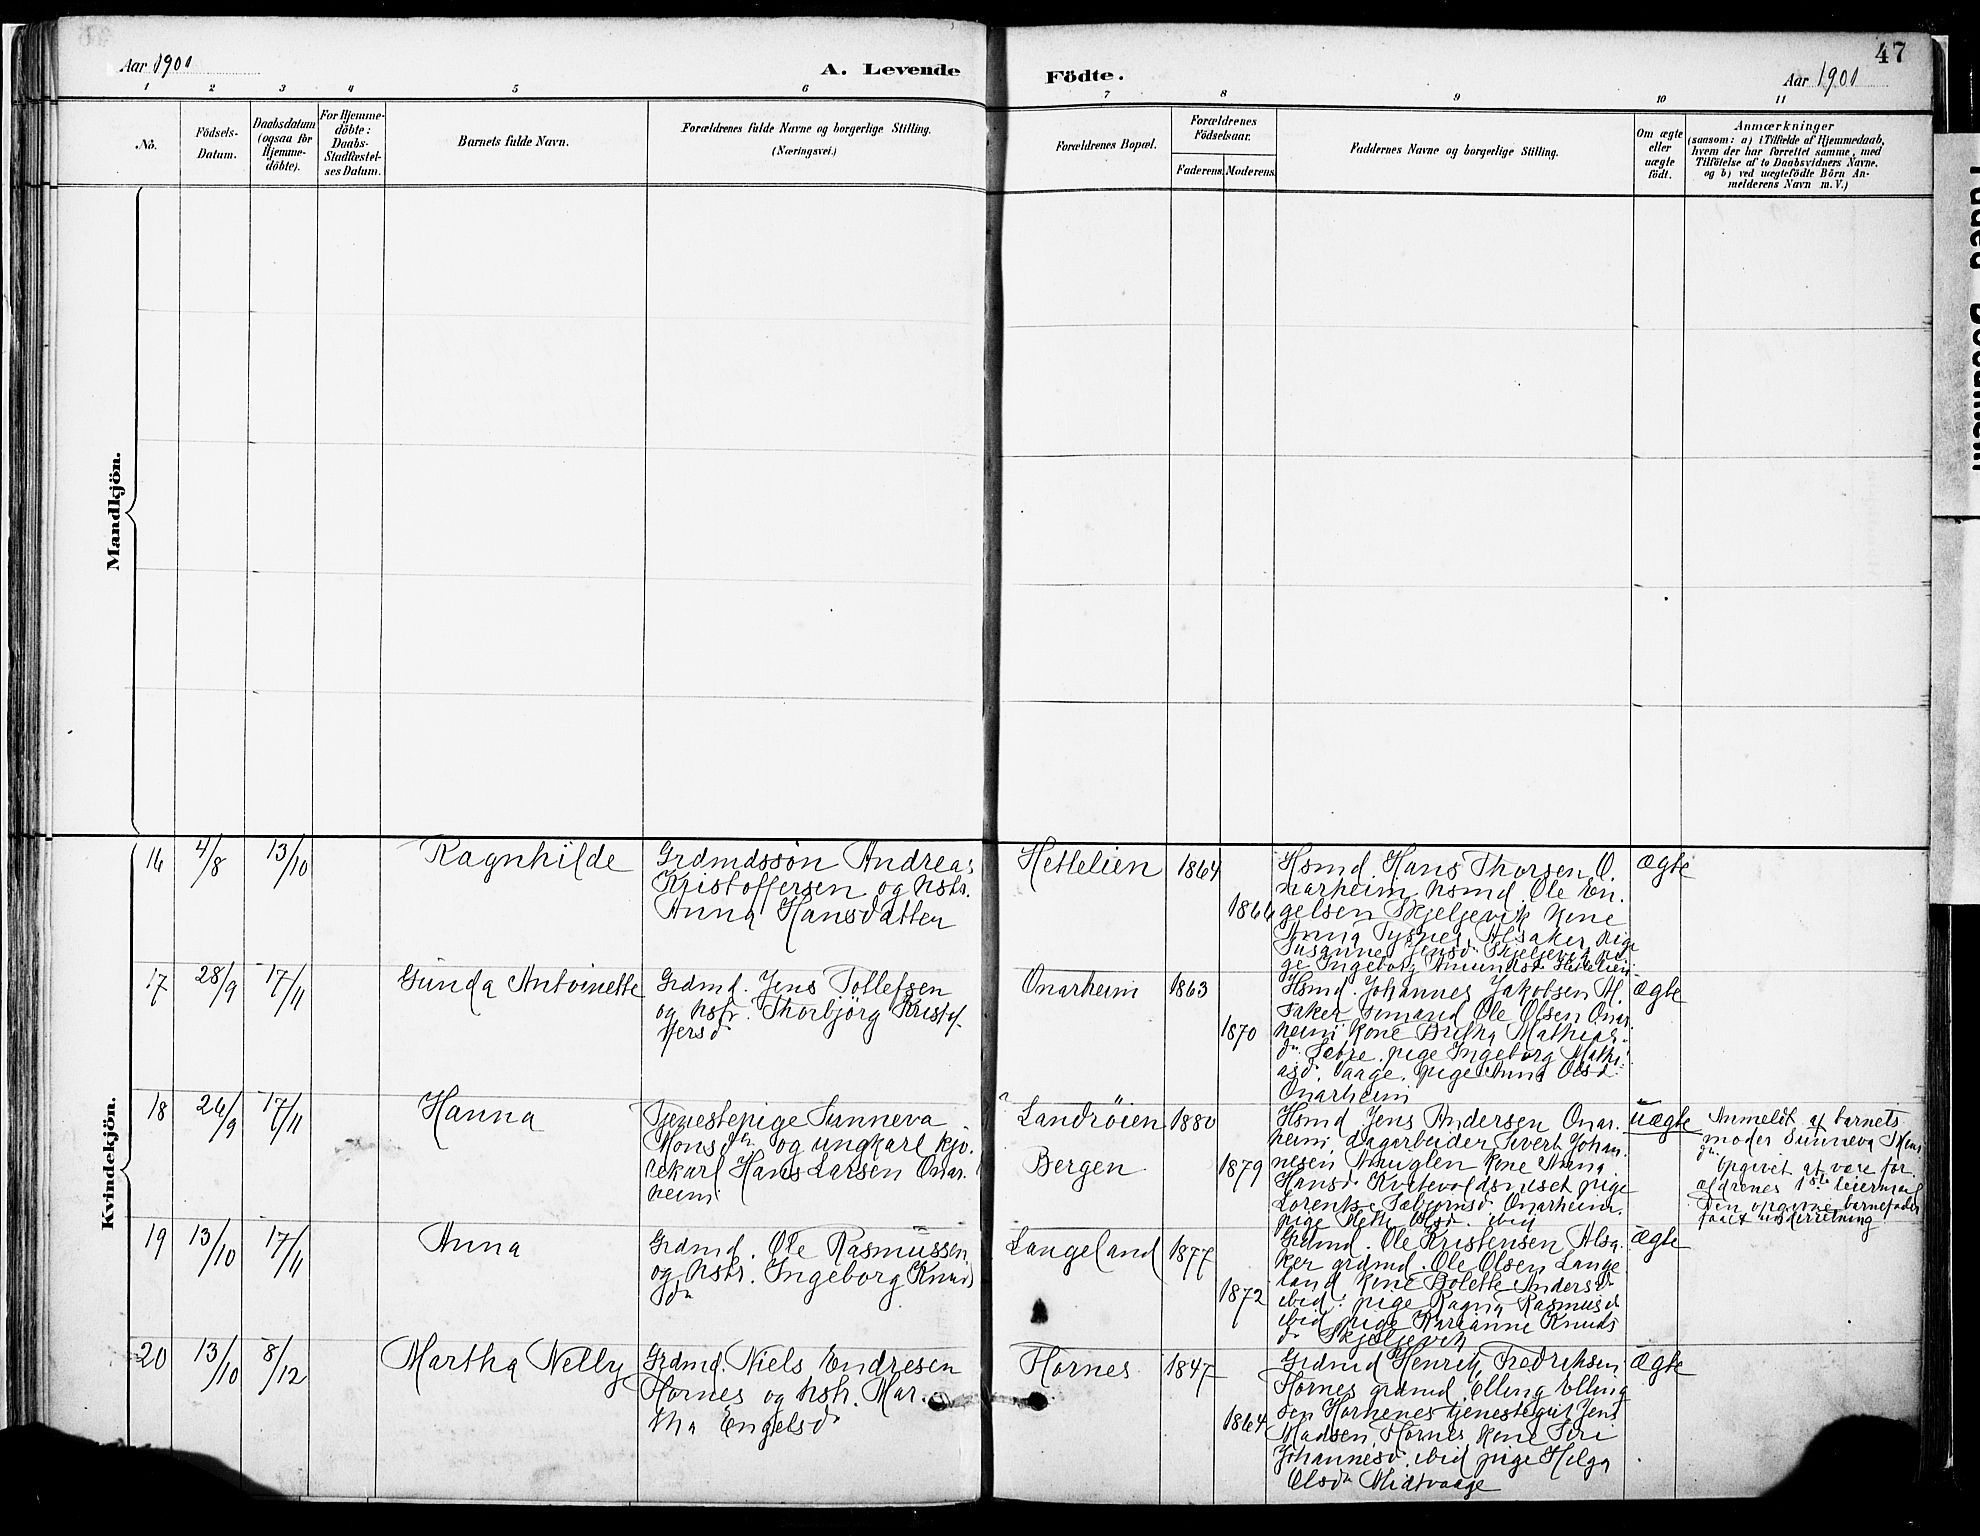 47
Aar 1901
A. Levende
Födte.
Aar 1901
1 2 3 4 5 6 7 8 9 10 11
No.
Födsels-
Datum.
Daabsdatum
(ogsaa for
Hjemme-
döbte).
For Hjemme-
döbte:
Daabs-
Stadfæstel-
ses Datum.
Barnets fulde Navn.
Forældrenes fulde Navne og borgerlige Stilling.
(Næringsvei.)
Forældrenes Bopæl.
Forældrenes
Födselsaar.
Faderens. Moderens.
Faddernes Navne og borgerlige Stilling.
Om ægte
eller
uægte
födt.
Anmærkninger
(saasom: a) i Tilfælde af Hjemmedaab,
hvem der har forrettet samme, med
Tilföielse af to Daabsvidners Navne,
og b) ved uægtefödte Börn An-
melderens Navn m. V.)
Mandkjön.
Kvindekjön.
16
4/8
13/10
Ragnhilde
Grdmdssön Andreas
Kristoffersen og hstr.
Anna Hansdatter
Hettelien
1864
1866
Hsmd. Hans Thorsen O.
narheim, hsmd. Ole En-
gelsen Skjeljevik kone
Anna Tysnes, Alsaker, pige
Susanne Jensd. Skjeljevik pi-
ge Ingeborg Amundsd. Hettelien
ægte
17
28/9
17/11
Gunda Antoinette
Grdmd. Jens Tollefsen
og hstr. Thorbjörg Kristof-
fersd
Onarheim
1863
1870
Hsmd. Johannes Jakobsen Al.
saker, Ole Olsen Onar-
heim kone Britha Mathias
dtr. pige Ingeborg Mathi-
asd. Vaage, pige Anna Olsd.
Onarheim
ægte
18
26/9
17/11
Hanna
Tjenestepige Sunneva
Monsdtr. og ungkarl kjö-
rekarl Hans Larsen Onar-
heim
Landröien
Bergen
1880
1879
Hsmd. Jens Andersen Onar-
heim, dagarbeider Sivert Johan-
nesen kone Anna
Hansd. pige
Onarheim,
pige Olsd. ibid
uægte
Anmeldt af barnets
moder Sunneva Mons
dtr. opgivet at være for-
ældrenes 1ste leiermaal
Den opgivne barnefader
faaet underretning
19
13/10
17/11
Anna
Grdmd. Ole Rasmussen
og hstr. Ingeborg Knuds
dtr
Langeland
1877
1872
Grdmd. Ole Kristensen Alsa-
ker grdmd. Ole Olsen Lange
land kone Bolette Andersdr
ibid. pige Ragna Rasmusd
ibid pige Karianne Knuds
dr Skjeljevik
ægte
20
13/10
8/12
Martha Nelly
Grdmd. Niels Endresen
Hornes og hstr. Mar-
tha Engelsdr
Hornes
1847
1864
Grdmd Henrik Fredriksen
Hornes grdmd. Elling Elling
sen Hornenes tjenestegut Jens
Madsen Hornes kone Siri
Johannesd. ibid pige Helga
Olsdtr Midtvaage
ægte